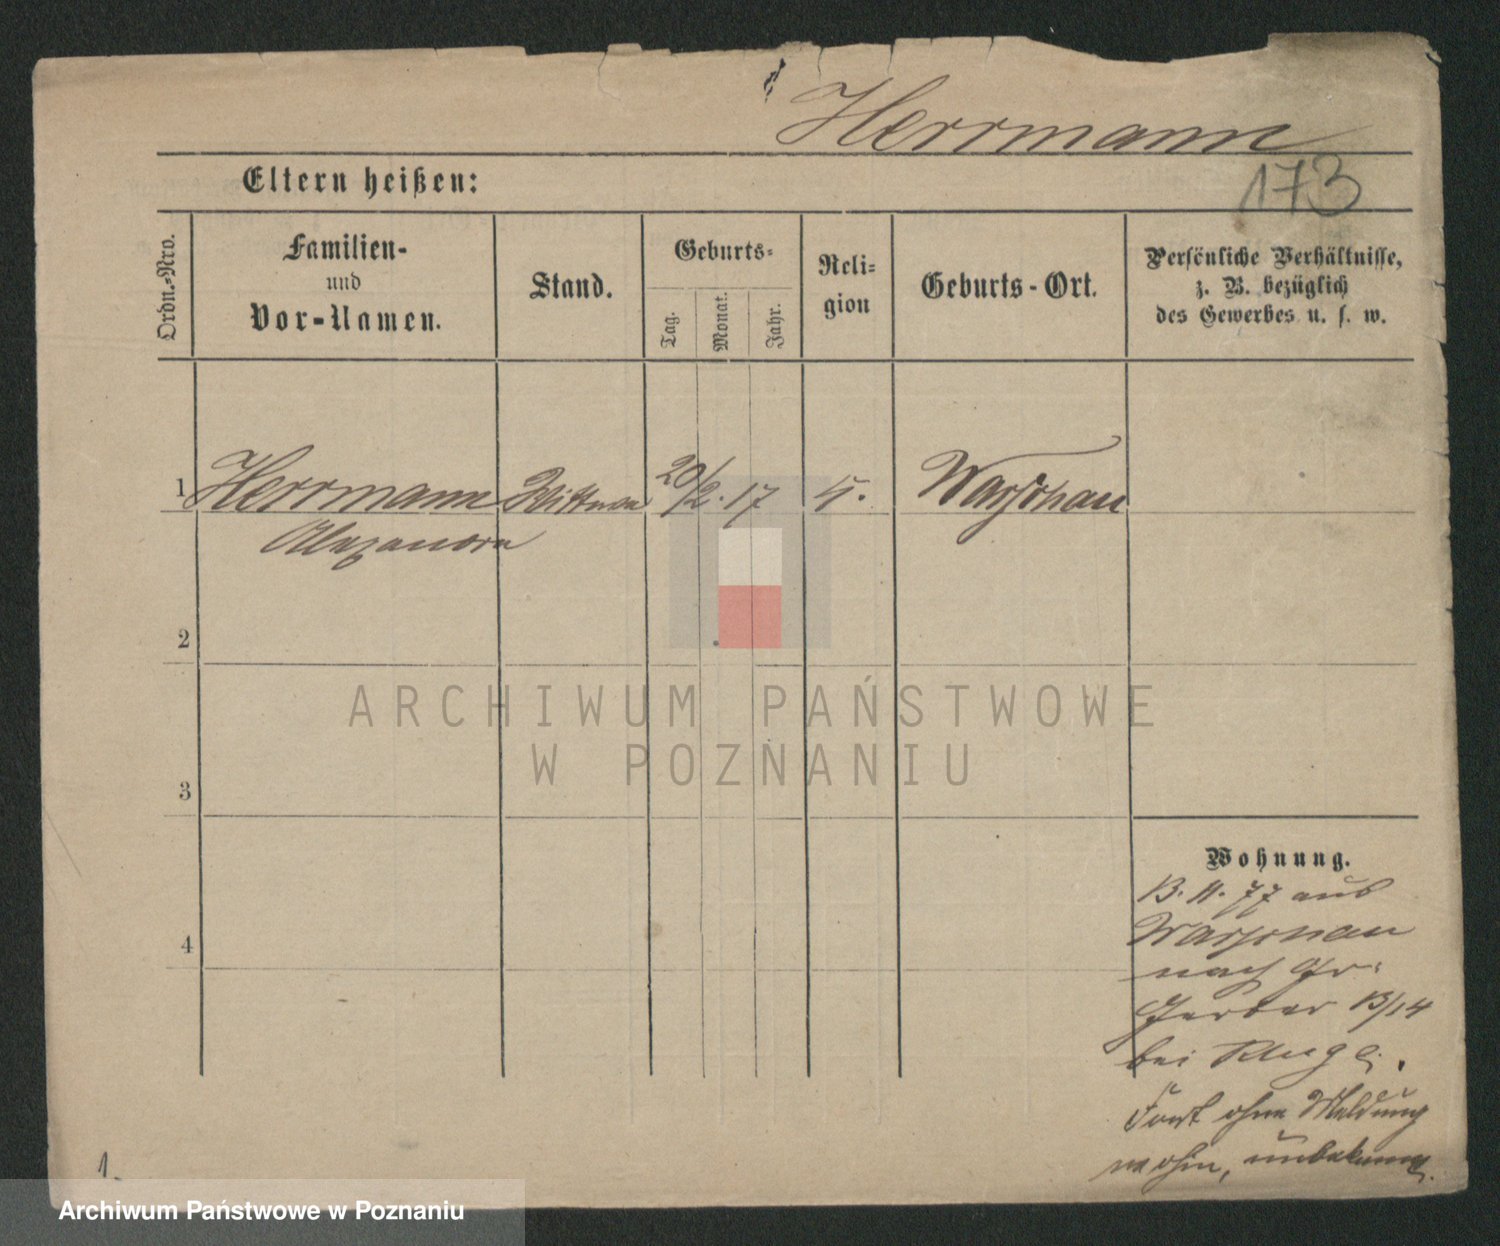 Herrmann
173
Eltern heißen:
Ordn.-Nro.
Familien-
und
Vor-Namen.
Stand.
Geburts-
Tag.
Monat.
Jahr.
Reli-
gion
Geburts-Ort.
Persönliche Verhältnisse,
z. B. bezüglich
des Gewerbes u. s. w.
1 Herrmann Wittwe 20/2. 17 Warschau
Alexandra
2
3
4
ARCHIWUM PAŃSTWOWE
W POZNANIU
Wohnung.
13. 11. 77 aus
Warschau
nach Gr.
Gerber 13/14
bei
Fort ohne Meldung
wohin, unbekannt.
1.
Archiwum Państwowe w Poznaniu